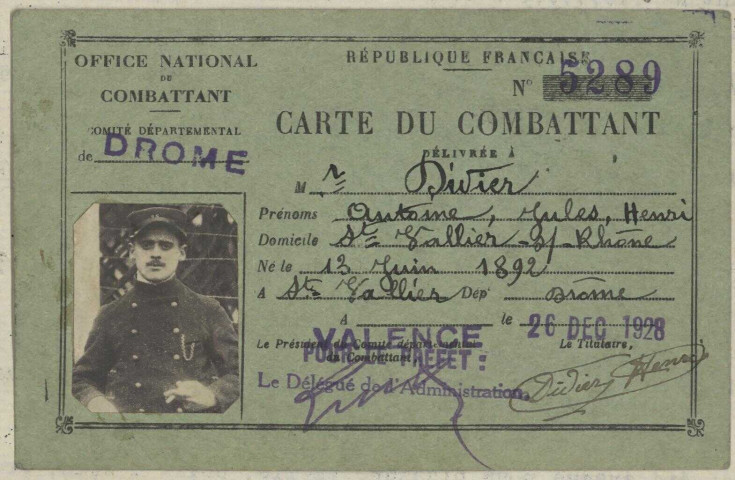 OFFICE NATIONAL
DU
COMBATTANT
COMITÉ DÉPARTEMENTAL
de DROME
RÉPUBLIQUE FRANÇAISE
N° 5289
CARTE DU COMBATTANT
DÉLIVRÉE A
M r Divier
Prénoms Antoine, Jules, Henri
Domicile St Vallier-S/-Rhône
Né le 13 Juin 1892
A St Vallier Dépt Drôme
A VALENCE le 26 DEC 1928
Le Président du Comité départemental
du Combattant,
POUR LE PREFET :
Le Titulaire,
Le Délégué de l'Administration,
Didier Henri